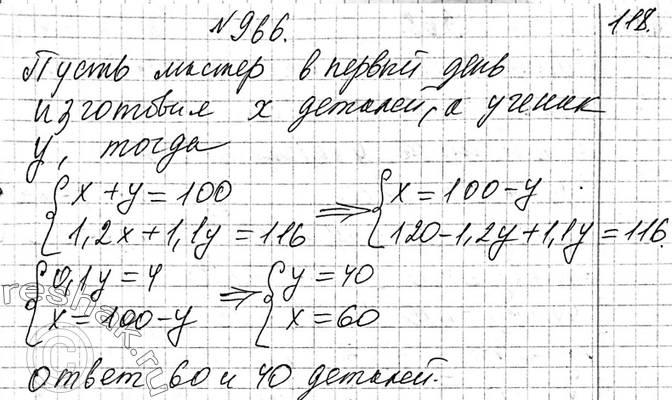 №966.
118.
Пусть мастер в первый день
изготовил x деталей, а ученик
y, тогда
{x + y = 100 ⇒ {x = 100 - y
{1,2x + 1,1y = 116 {120 - 1,2y + 1,1y = 116.
{0,1y = 4 ⇒ {y = 40
{x = 100 - y {x = 60
ответ 60 и 40 деталей.
reshak.ru